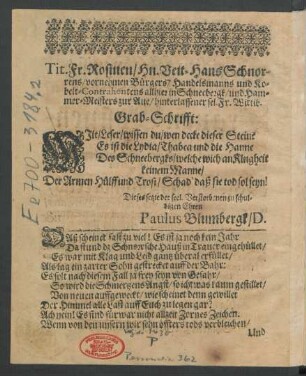 Tit. Fr. Rosinen/ Hn. Veit-Hans Schnor-
rens/ vornehmen Bürgers/ Handelsmanns und Ko-
belt-Contrahentens allhier in Schneebergk/ und Ham-
mer-Meisters zur Aue/ hinterlassener sel. Fr. Wittib.
Grab-Schrifft:
Wilt/ Leser/ wissen du/ wen decke dieser Stein?
Es ist die Lydia/ Thabea und die Hanne
Des Schneebergks/ welche wich an Klugheit
keinem Manne/
Der Armen Hülff und Trost/ Schad' daß sie tod sol seyn!
Dieses setzte der seel. Verstorbenen zu schul-
digen Ehren
Paulus Blumbergk/ D.
Daß scheinet fast zu viel! Es ist ja noch kein Jahr
Da stund de Schnorrische Hauß in Trauer eingehüllet/
Es war mit Klag und Leid gantz überal erfüllet/
Als lag ein zarter Sohn gestrecket auff der Bahr;
Es solt nach diesem Fall ja seyn fern von Gefahr/
So wird die Schmertzens Angst/ so sich was kaum gestillet/
Von neuen auffgeweckt/ wie scheinet denn gewillet
Der Himmel alle Last auff Euch zu legen gar!
Ach nein! Es sind fürwar nicht allzeit Zornes Zeichen.
Wenn von den unsern wir sehn öffters tods verbleichen/
Und
P
Personalia 362